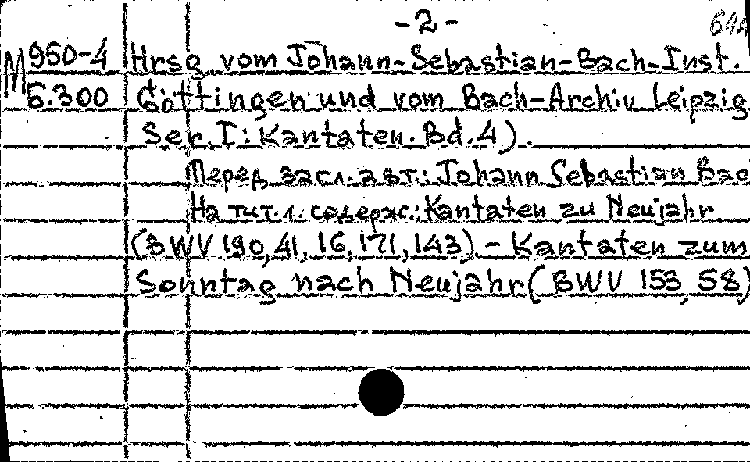 -2-
М 950-4 Hrsg vom Johann-Sebastian-Bach-Inst.
5.300 Göttingen und vom Bach-Archiv Leipzig
Ser. I: Kantaten. Bd. 4).
Перед засл. авт.: Johann Sebastian Bac
На тит. л. содерж.: Kantaten zu Neujahr
(BWV 190, 41, 16, 171, 143). - Kantaten zum
Sonntag nach Neujahr (BWV 153, 58)